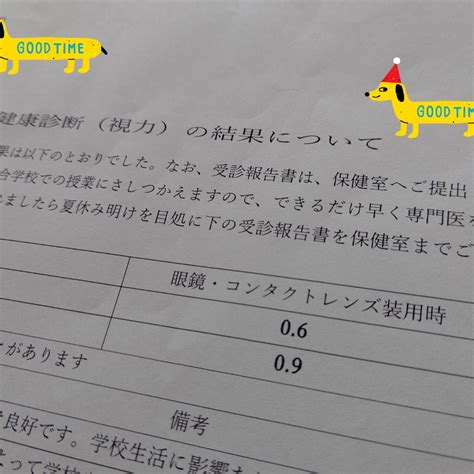 GOOD TIME
GOOD TIME
健康診断（視力）の結果について
果は以下のとおりでした。なお、受診報告書は、保健室へご提出
合学校での授業にさしつかえますので、できるだけ早く専門医を
ましたら夏休み明けを目処に下の受診報告書を保健室までご
眼鏡・コンタクトレンズ装用時
0.6
0.9
があります
備考
良好です。学校生活に影響
って学校